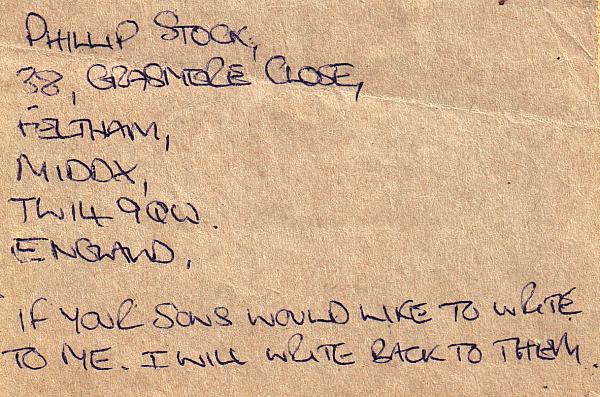 PHILLIP STOCK,
38, GRASMERE CLOSE,
FELTHAM,
MIDDX,
TW14 9QW.
ENGLAND,
IF YOUR SONS WOULD LIKE TO WRITE
TO ME. I WILL WRITE BACK TO THEM.